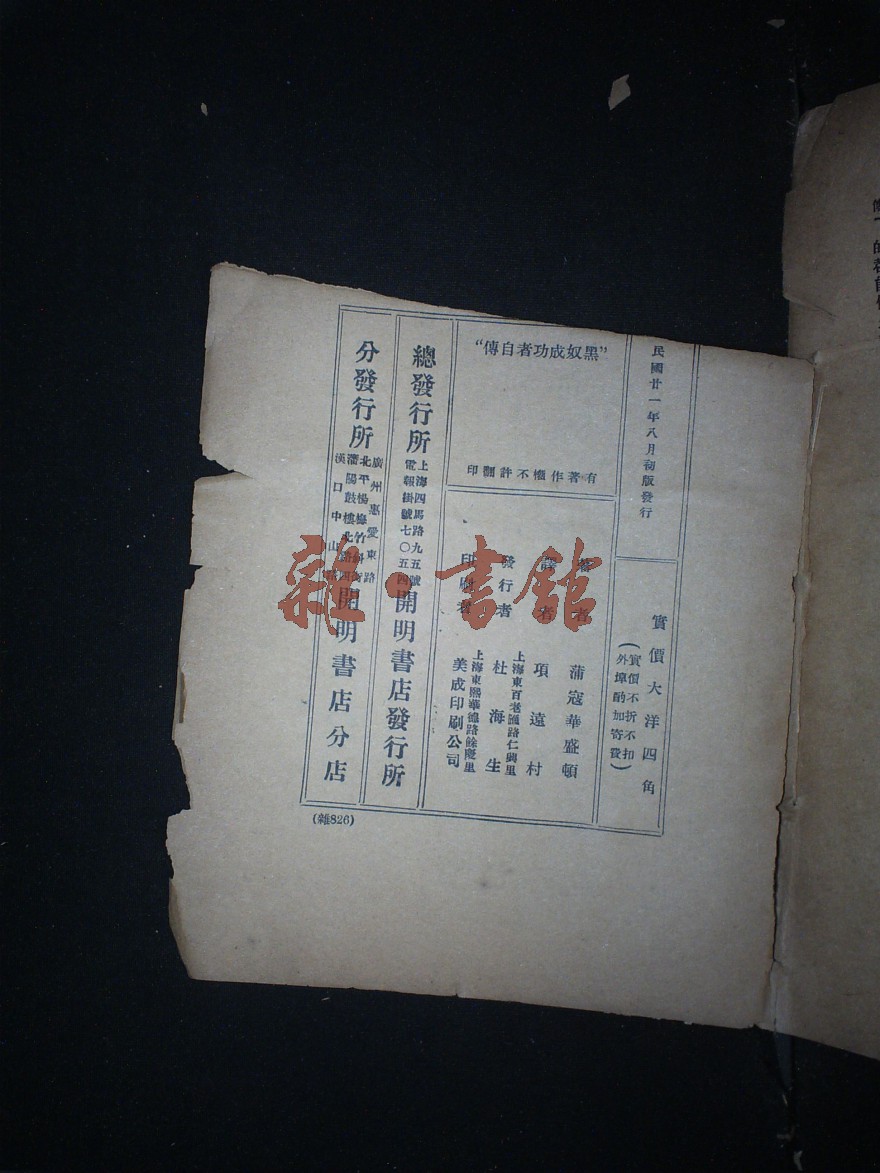 民國廿一年八月初版發行
實價大洋四角
(實價不折不扣
外埠酌加寄費)
"黑奴成功者自傳"
有著作權不許翻印
著者 蒲寇華盛頓
譯者 項遠村
發行者 上海東百老匯路仁興里
杜海生
印刷者 上海東熙華德路餘慶里
美成印刷公司
總發行所 上海四馬路九五號
電報掛號七〇五四
開明書店發行所
分發行所 廣州惠愛東路
北平楊梅竹斜街
瀋陽鼓樓北
漢口中山路
開明書店分店
(雜826)
雜·書館